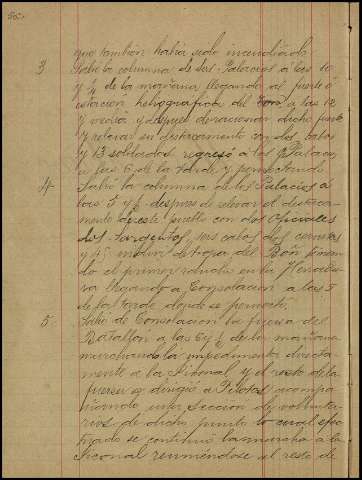 que tambien habia sido incendiado
3 Salió la columna de los Palacios á las 10
y ½ de la mañana llegando al fuerte ó
estación heliografica del a las 12
y media y despues de racionar dicho fuerte
y relevar su destacamento con dos cabos
y 13 soldados regresó a los Palacios
á las 6 de la tarde y pernoctando
4 Salió la columna de los Palacios á
las 5 y ½ despues de relevar el destaca-
mento de este pueblo con dos oficiales
dos sargentos, seis cabos dos cornetas
y 45 indiv. de tropa del Bón
do el primer rancho en la Herradu-
ra llegando á Consolacion a las 5
de la tarde donde se pernoctó.
5 Salió de Consolacion la fuerza del
Batallón a las 6 y ½ de la mañana
marchando la impedimenta directa-
mente a la y el resto de la
fuerza se dirigió a Pilotos acompa-
ñando una Seccion de volunta-
rios de dicho punto lo cual efec-
tuado se continuó la marcha á la
reuniendose el resto de